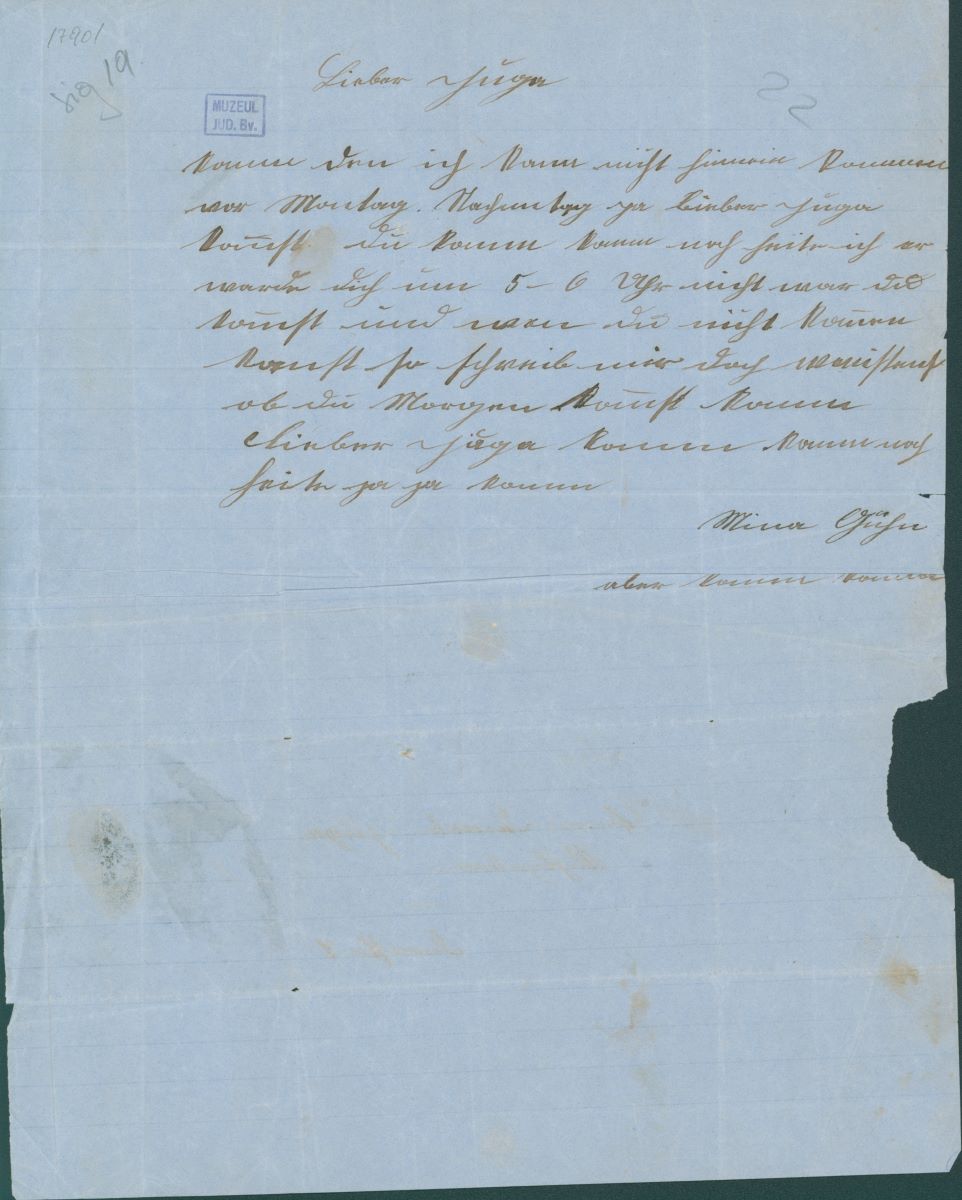 17901
sig 19.
MUZEUL
JUD. Bv.
Lieber Juga
komm den ich kann nicht hinein kommen
vor Montag. Nachmtag ja lieber Juga
kom̄st du komm komm noch heite ich er
warde dich um 5-6 Uhr nicht war du
kom̄st und wen du nicht kom̄en
kanst so schreib mir doch wenistens
ob du Morgen kom̄st komm
lieber Juga komm komm noch
heite ja ja komm
Mina
aber komm komm